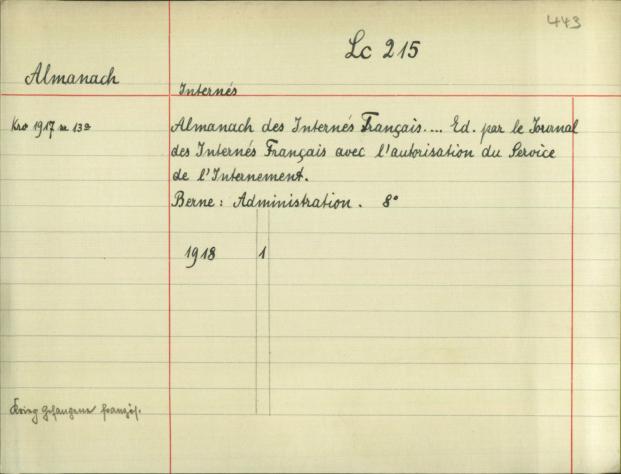 443
Lc 215
Almanach
Internés
Kro 1917 n 133
Almanach des Internés Français.... Ed. par le Journal
des Internés Français avec l'autorisation du Service
de l'Internement.
Berne: Administration. 8°
1918 1
Krieg Gefangene französ.